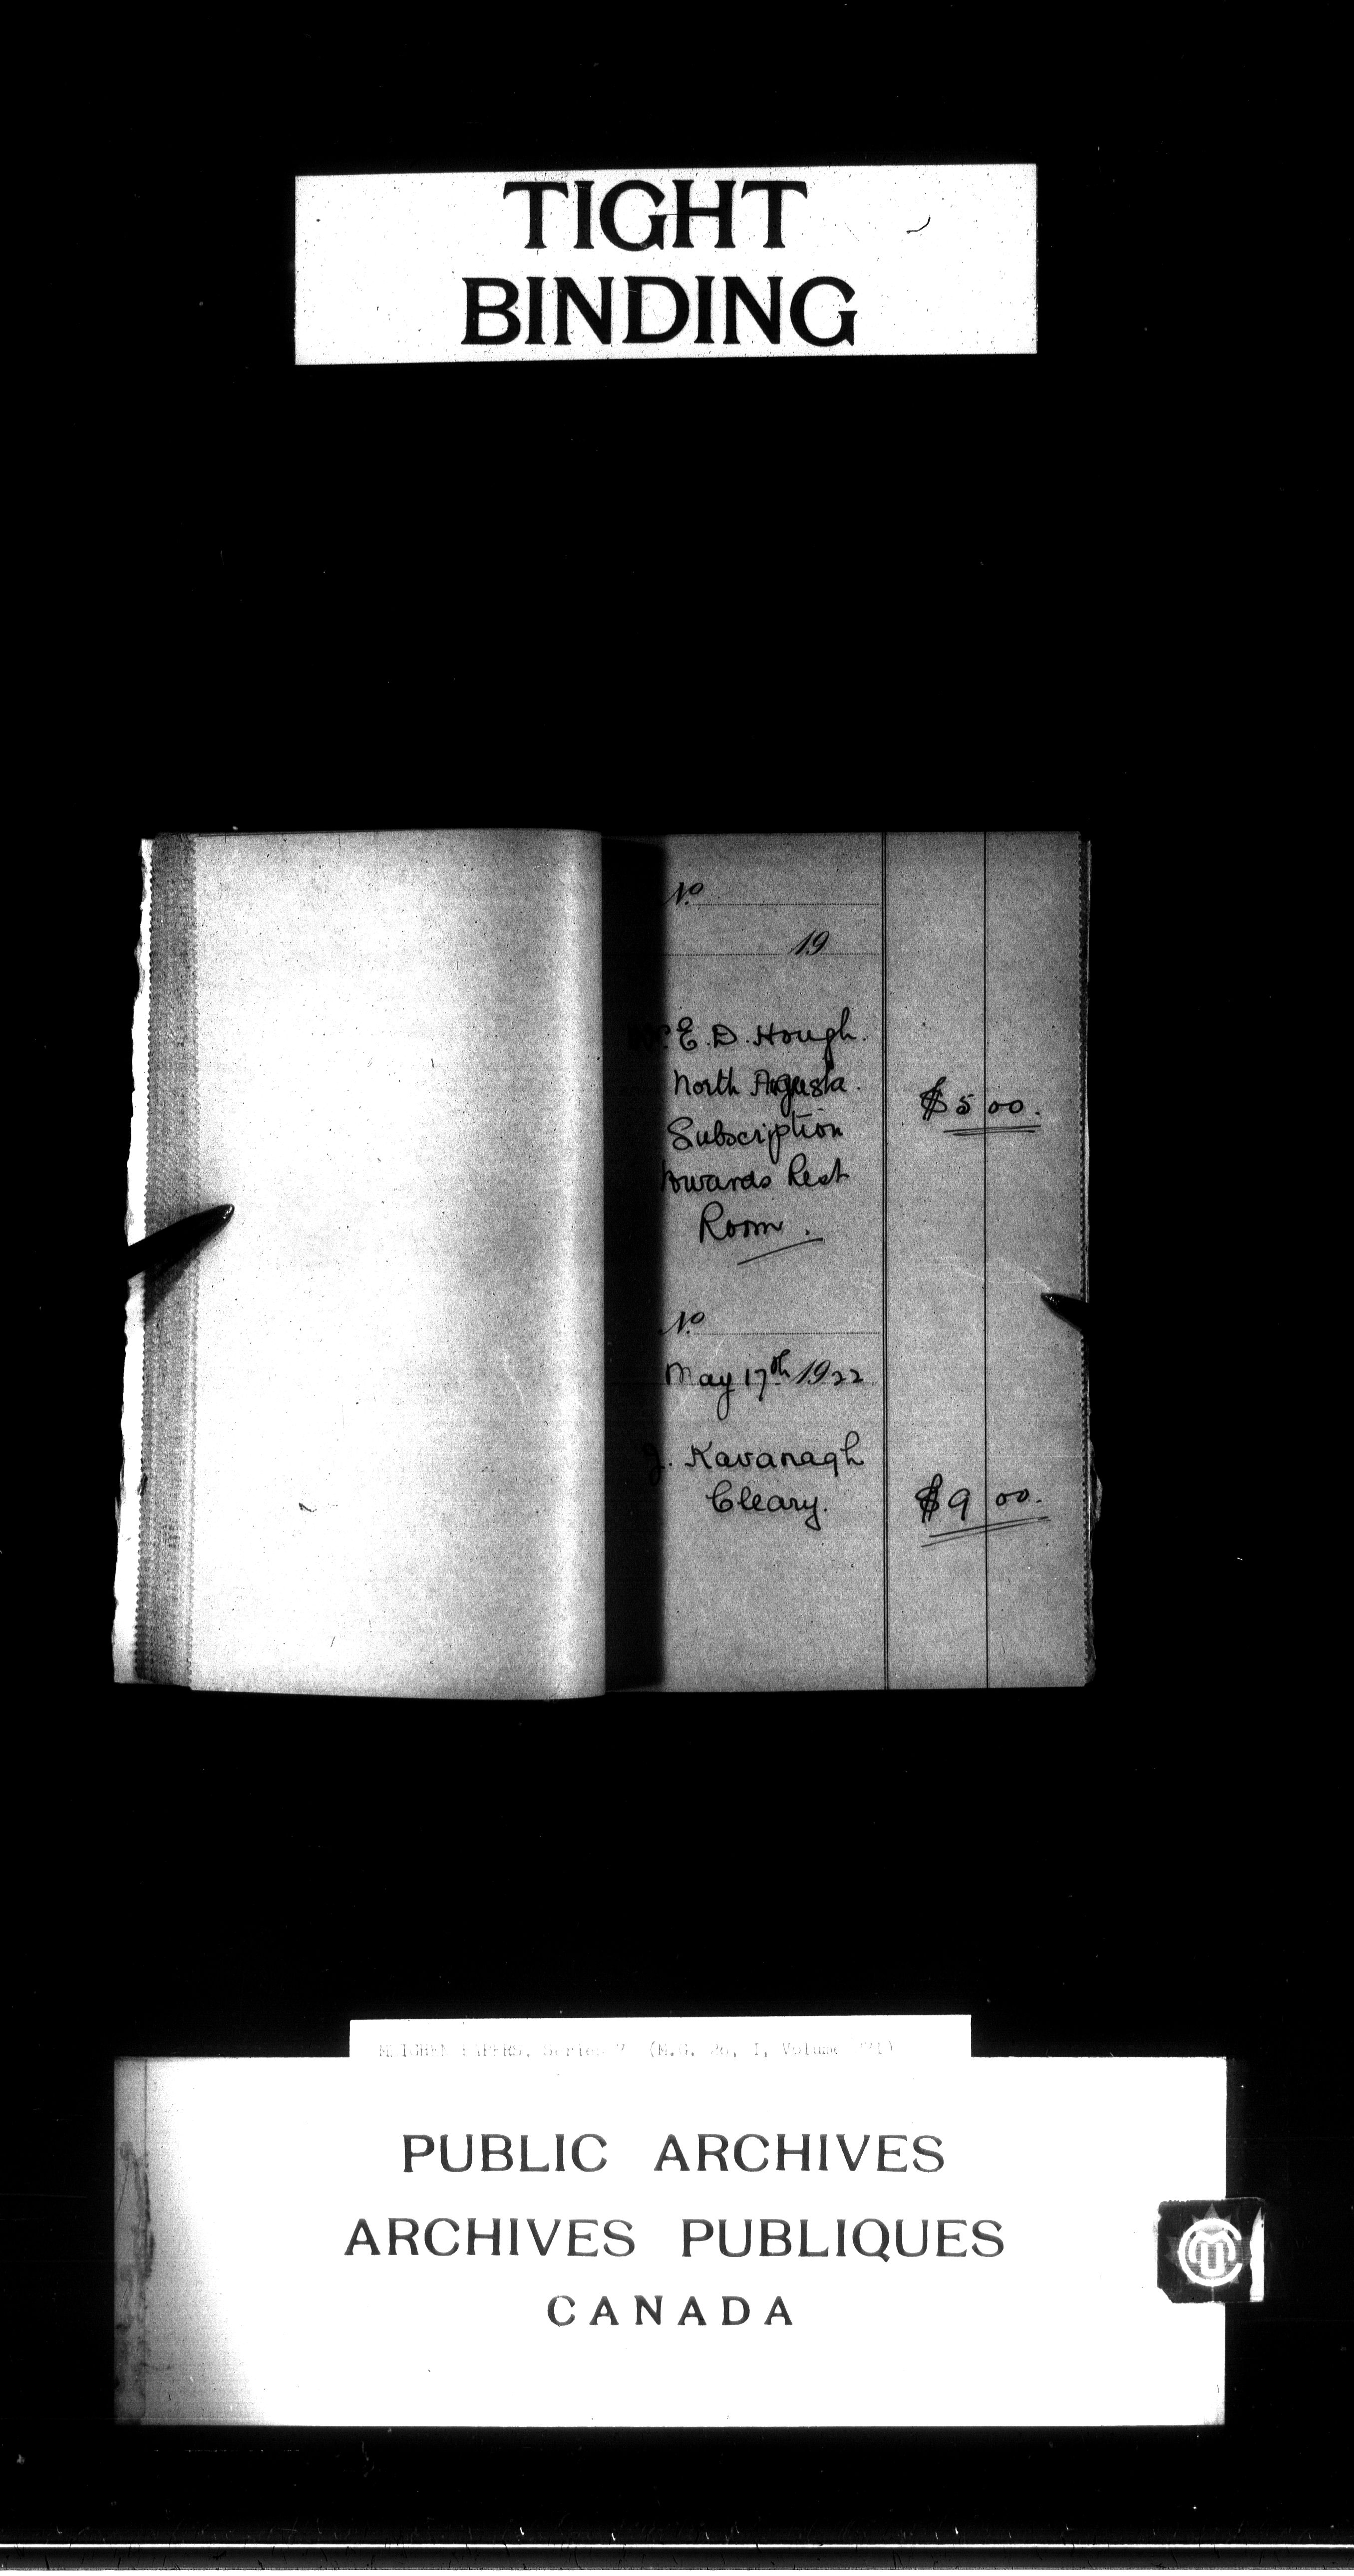 TIGHT
BINDING
No
19
E. D. Hough.
North Augusta.
$5 00.
Subscription
towards Rest
Room.
No
May 17th 1922
J. Kavanagh
Cleary.
$9 00.
MEIGHEN PAPERS, Series 7 (M.G. 26, I, Volume
PUBLIC ARCHIVES
ARCHIVES PUBLIQUES
CANADA